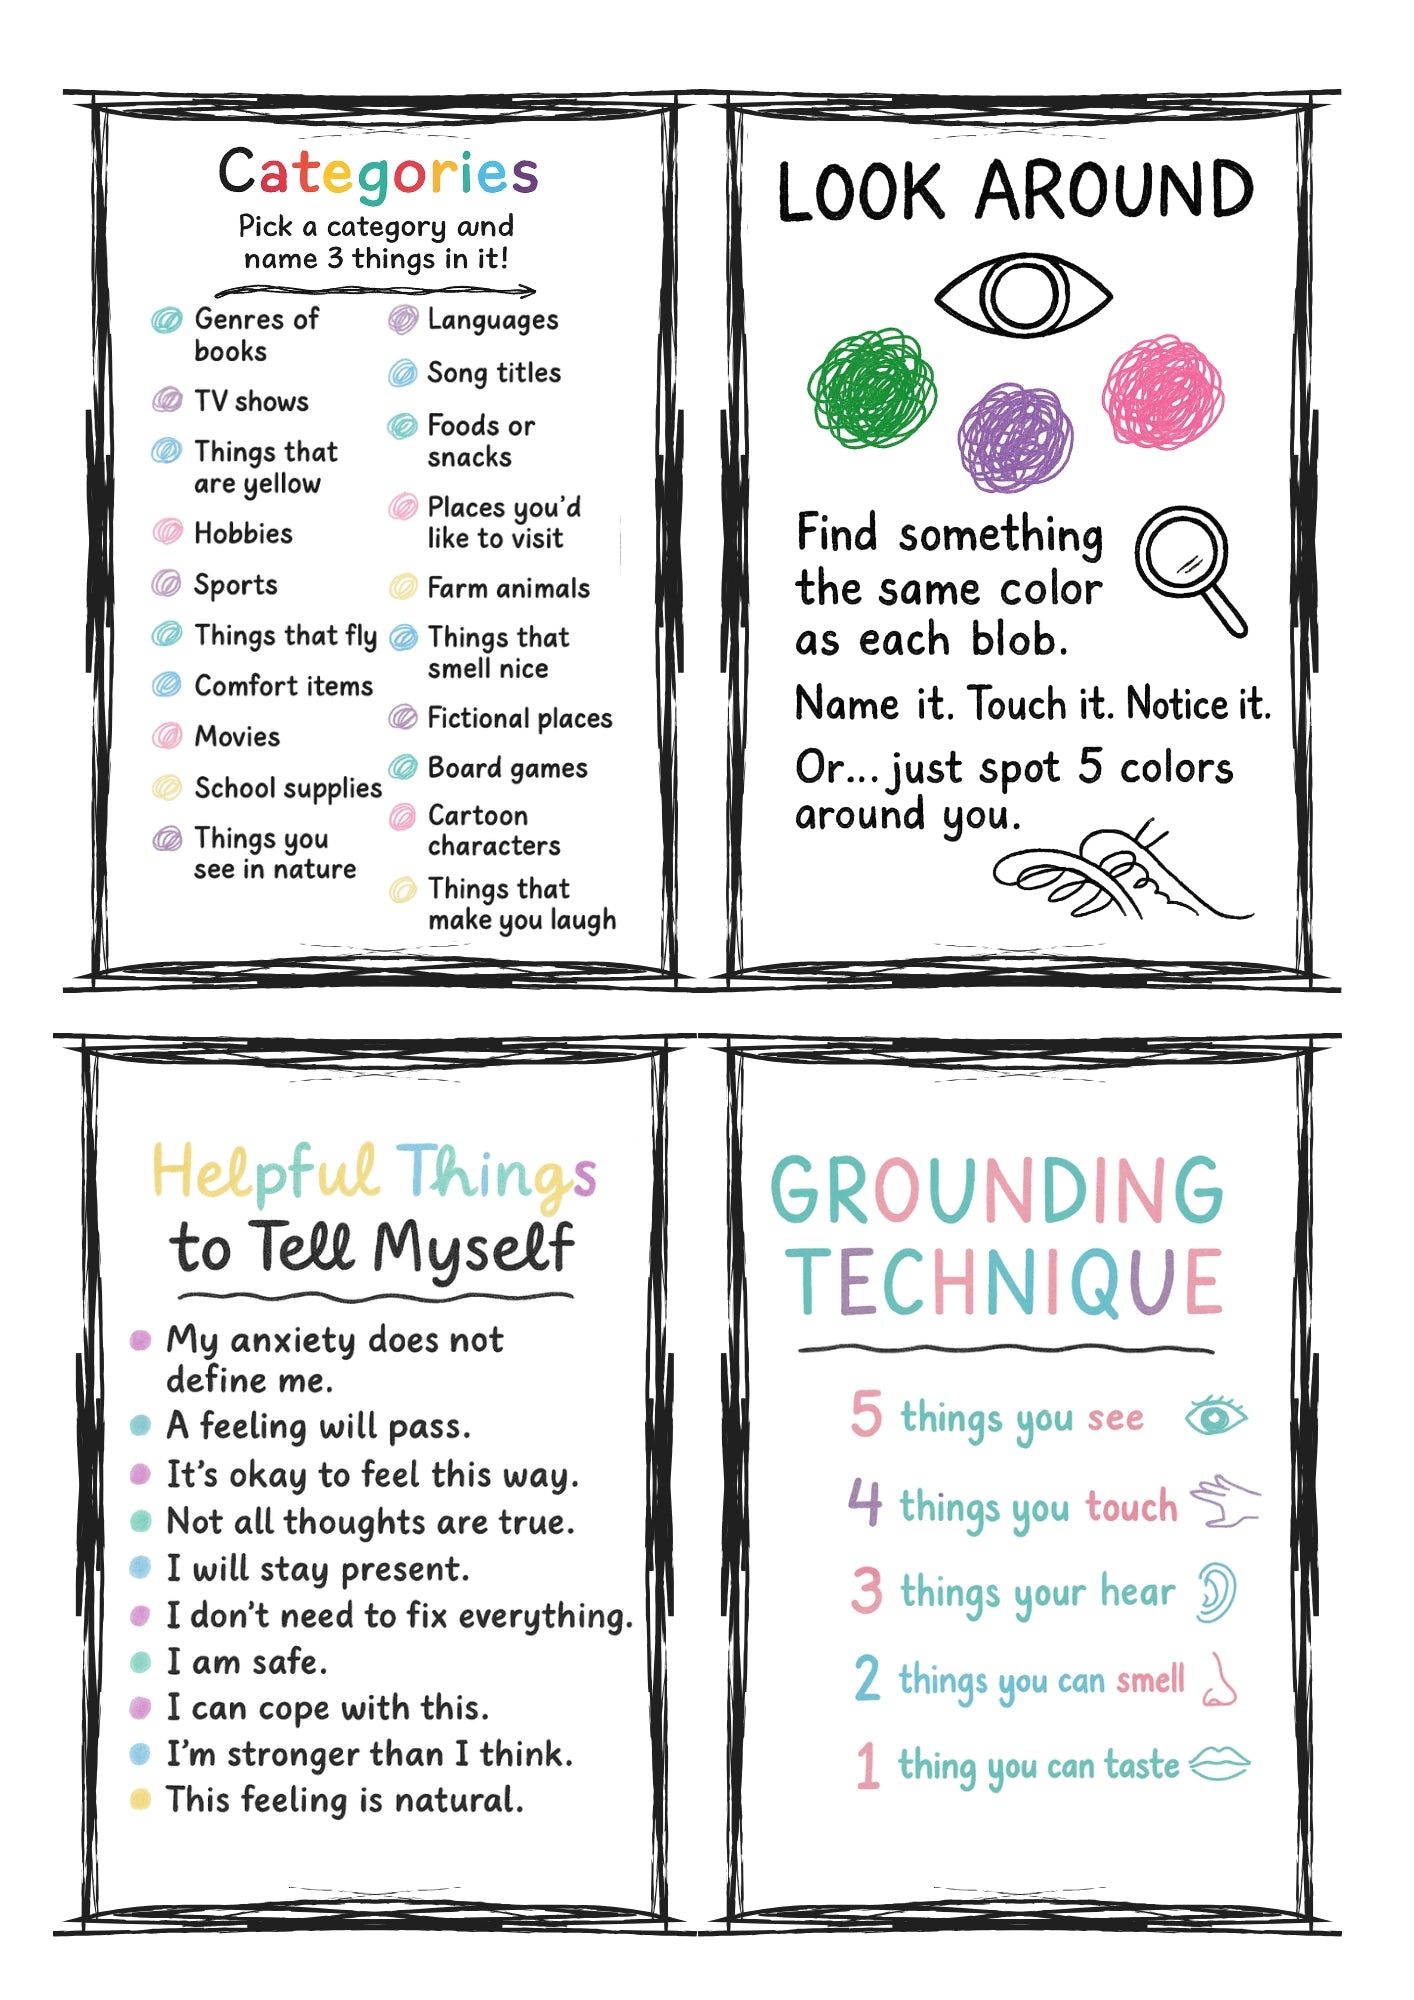 Categories
Pick a category and
name 3 things in it!
Genres of
books
TV shows
Things that
are yellow
Hobbies
Sports
Things that fly
Comfort items
Movies
School supplies
Things you
see in nature
Languages
Song titles
Foods or
snacks
Places you'd
like to visit
Farm animals
Things that
smell nice
Fictional places
Board games
Cartoon
characters
Things that
make you laugh
LOOK AROUND
Find something
the same color
as each blob.
Name it. Touch it. Notice it.
Or... just spot 5 colors
around you.
Helpful Things
to Tell Myself
My anxiety does not
define me.
A feeling will pass.
It's okay to feel this way.
Not all thoughts are true.
I will stay present.
I don't need to fix everything.
I am safe.
I can cope with this.
I'm stronger than I think.
This feeling is natural.
GROUNDING
TECHNIQUE
5 things you see
4 things you touch
3 things your hear
2 things you can smell
1 thing you can taste